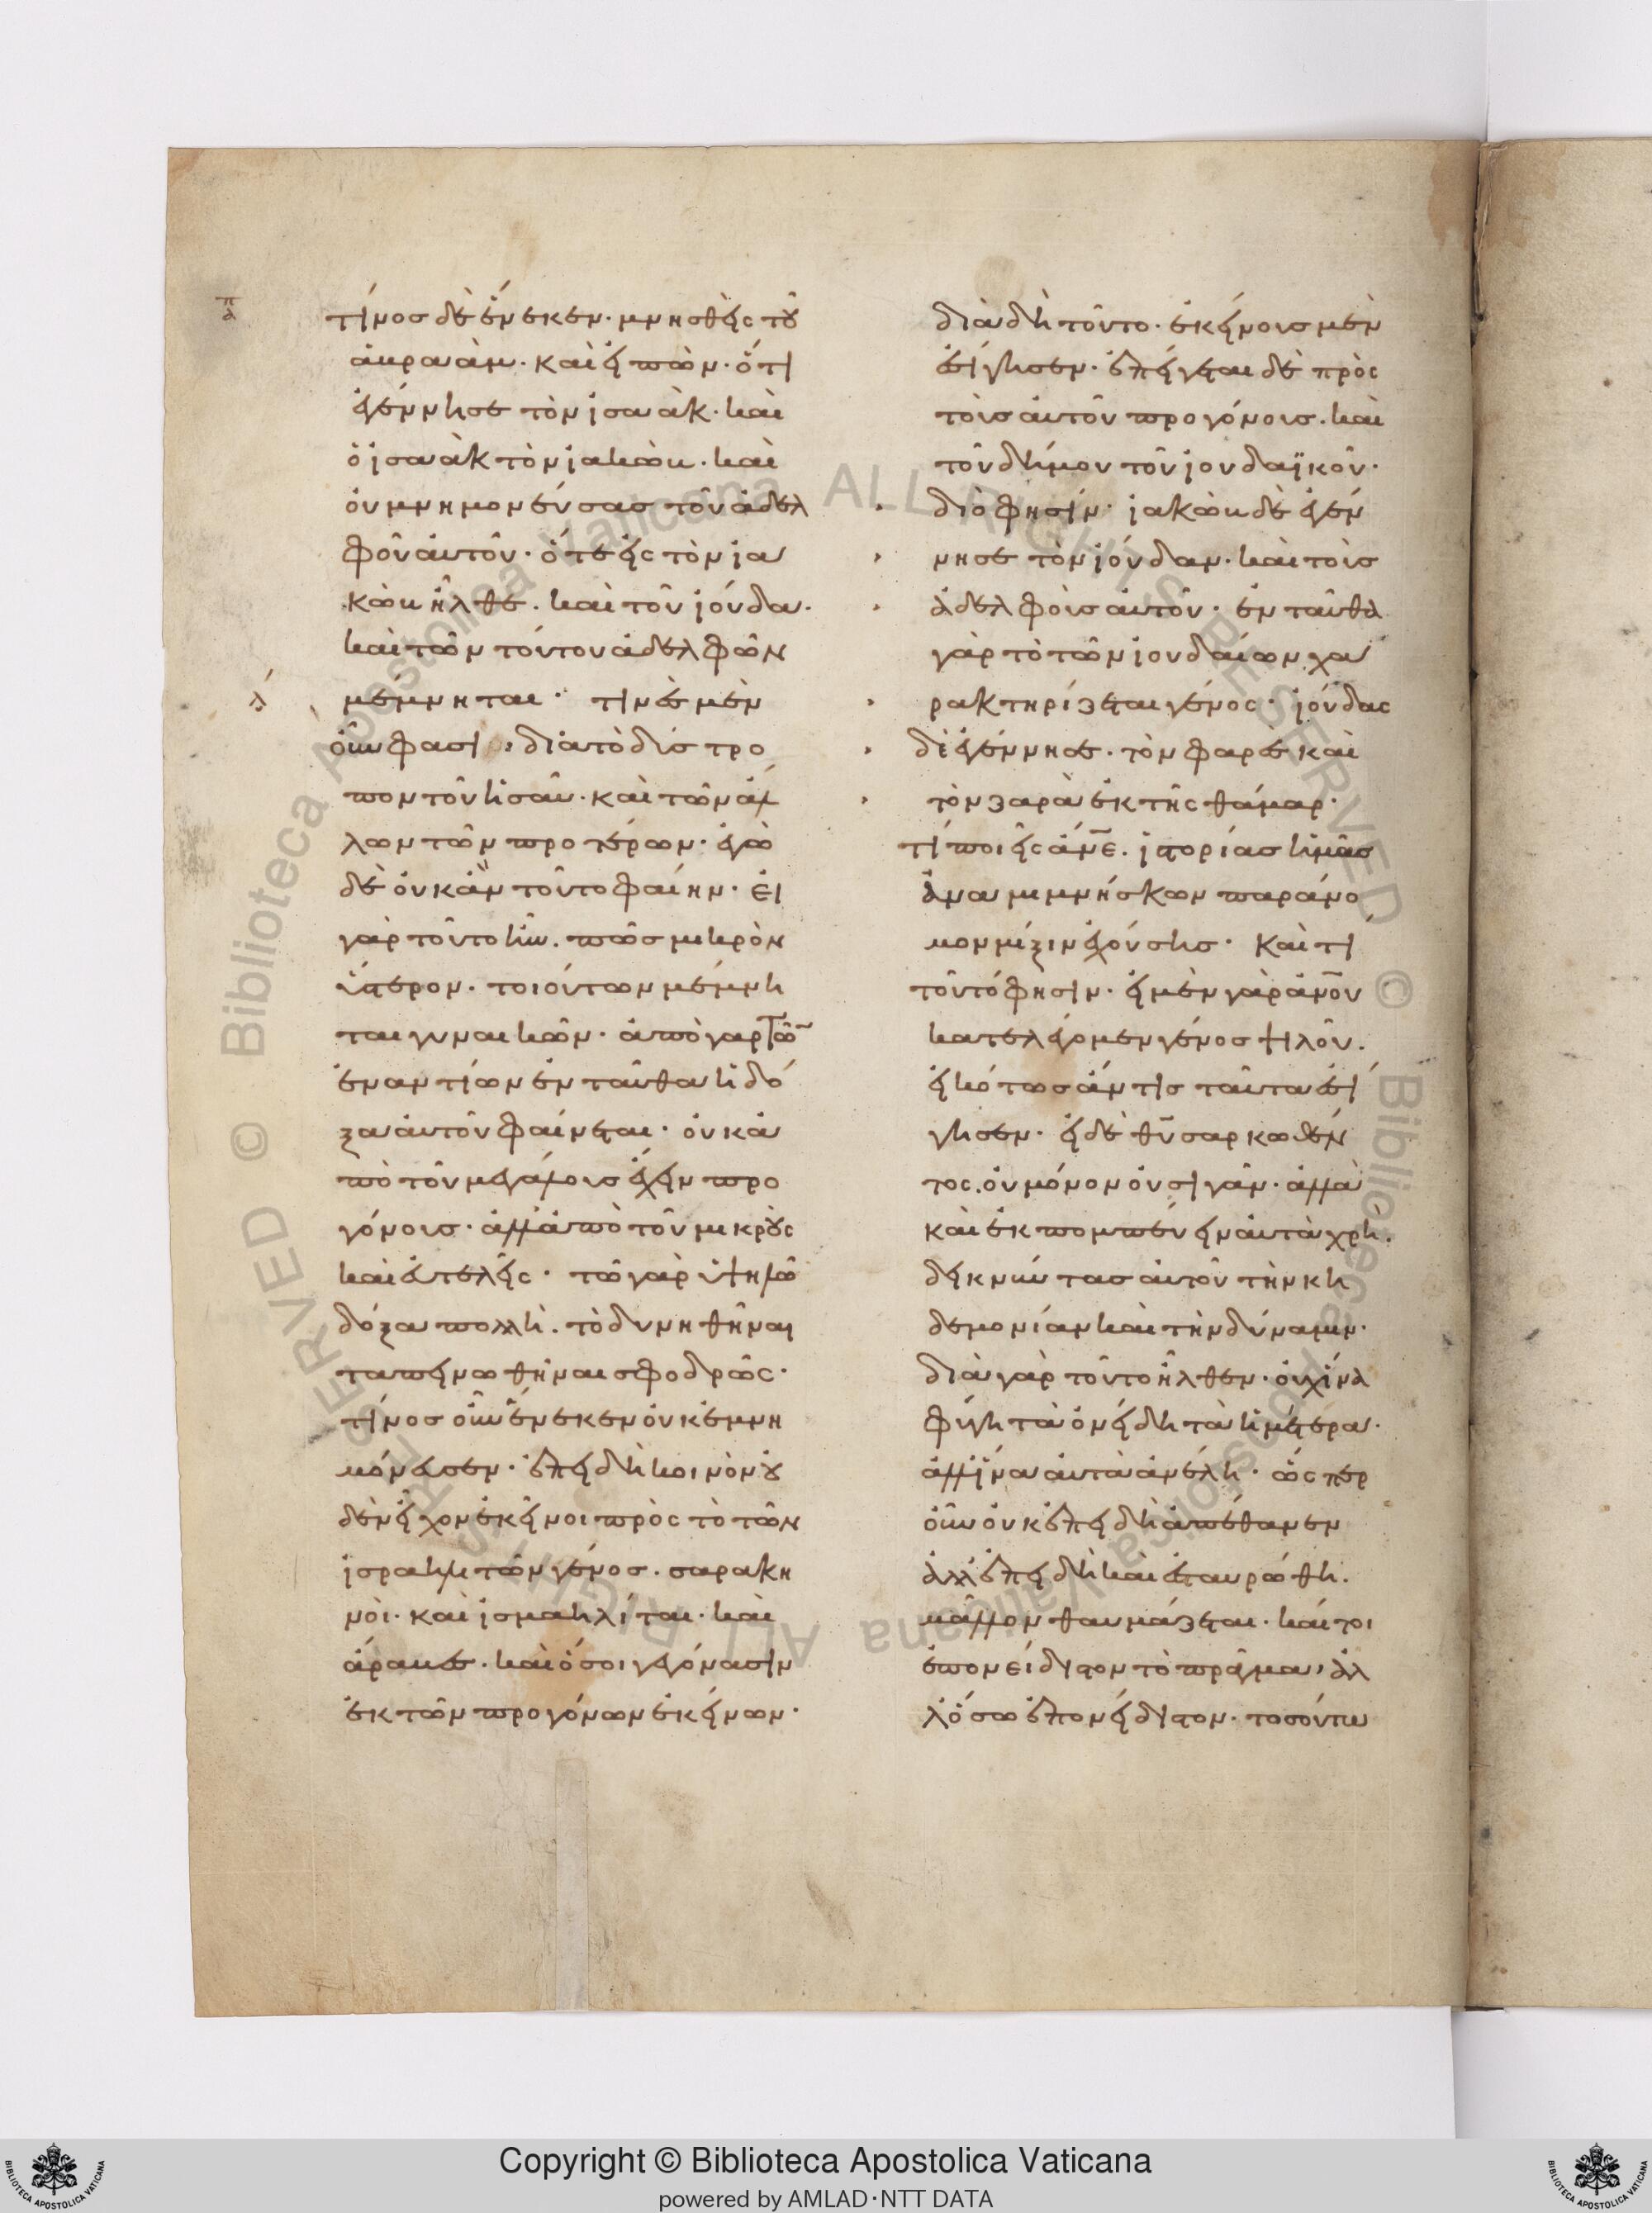 τίνος δὲ ἕνεκεν· μνησθεὶς τοῦ
ἀβραὰμ· καὶ εἰπὼν· ὅτι
ἐγέννησε τὸν ἰσαὰκ· καὶ
ὁ ἰσαὰκ τὸν ἰακὼβ· καὶ
οὐ μνημονεύσας τοῦ ἀδελ
φοῦ αὐτοῦ· ὅτε εἰς τὸν ἰα
κὼβ ἦλθε· καὶ τοῦ ἰούδα·
καὶ τῶν τούτου ἀδελφῶν
μέμνηται· τινὲς μὲν
οὖν φασὶ, διὰ τὸ δύστρο
πον τοῦ ἠσαῦ· καὶ τῶν ἄλ
λων τῶν προτέρων· ἐγὼ
δὲ οὐκ ἂν τοῦτο φαίην· εἰ
γὰρ τοῦτο ἦν· πῶς μικρὸν
ὕστερον· τοιούτων μέμνη
ται γυναικῶν· ἀπὸ γὰρ τῶ̅
ἐναντίων ἐνταῦθα ἡ δό
ξα αὐτοῦ φαίνεται· οὐκ ἀ
πὸ τοῦ μεγάλους ἔχειν προ
γόνους· ἀλλ' ἀπὸ τοῦ μικροὺς
καὶ εὐτελεῖς· τῶ γὰρ ὑψηλῶ
δόξα πολλὴ· τὸ δυνηθῆναι
ταπεινωθῆναι σφοδρῶς·
τίνος οὖν ἕνεκεν οὐκ ἐμνη
μόνευσεν· ἐπειδὴ κοινὸν οὐ
δὲν εἶχον ἐκεῖνοι πρὸς τὸ τῶν
ἰσραηλιτῶν γένος· σαρακη
νοὶ· καὶ ἰσμαηλίται· καὶ
ἄραβες· καὶ ὅσοι γεγόνασιν
ἐκ τῶν προγόνων ἐκείνων·
διὰ δὴ τοῦτο· ἐκείνους μὲν
ἐσίγησεν· ἐπείγεται δὲ πρὸς
τοὺς αὐτοῦ προγόνους· καὶ
τοῦ δήμου τοῦ ἰουδαϊκοῦ·
διὸ φησὶν· ἰακὼβ δὲ ἐγέν
νησε τὸν ἰούδαν· καὶ τοὺς
ἀδελφοὺς αὐτοῦ· ἐνταῦθα
γὰρ τὸ τῶν ἰουδαίων χα
ρακτηρίζεται γένος· ἰούδας
δὲ ἐγέννησε· τὸν φαρὲς καὶ
τὸν ζαρὰ ἐκ τῆς θάμαρ·
τί ποιεῖς ἄν̅ε· ἱστορίας ἡμᾶς
ἀναμιμνήσκων παράνο
μον μίξιν ἐχούσης· καὶ τί
τοῦτό φησιν· εἰ μὲν γὰρ ἀν̅ου
κατελέγομεν γένος ψιλοῦ·
εἰκότως ἄν τις ταῦτα ἐσί
γησεν· εἰ δὲ θ̅υ σαρκωθέν
τος· οὐ μόνον οὐ σιγᾶν· ἀλλὰ
καὶ ἐκπομπεύειν αὐτὰ χρὴ·
δεικνύντας αὐτοῦ τὴν κη
δεμονίαν καὶ τὴν δύναμιν·
διὰ γὰρ τοῦτο ἦλθεν· οὐχ ἵνα
φύγη τὰ ὀνείδη τὰ ἡμέτερα·
ἀλλ' ἵνα αὐτὰ ἀνέλη· ὥσπερ
οὖν οὐκ ἐπειδὴ ἀπέθανεν
ἀλλ' ἐπειδὴ καὶ ἐσταυρώθη·
μᾶλλον θαυμάζεται· καίτοι
ἐπονείδιστον τὸ πρᾶγμα, ἀλ
λ' ὅσω ἐπονείδιστον· τοσούτω